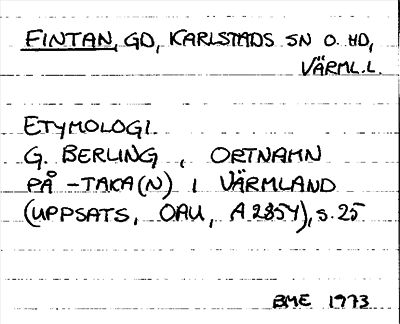 FINTAN, GD, KARLSTADS SN O. HD,
VÄRML.L.
ETYMOLOGI.
G. BERLING, ORTNAMN
PÅ -TAKA(N) I VÄRMLAND
(UPPSATS, OAU, A 2854), s. 25
BME 1973